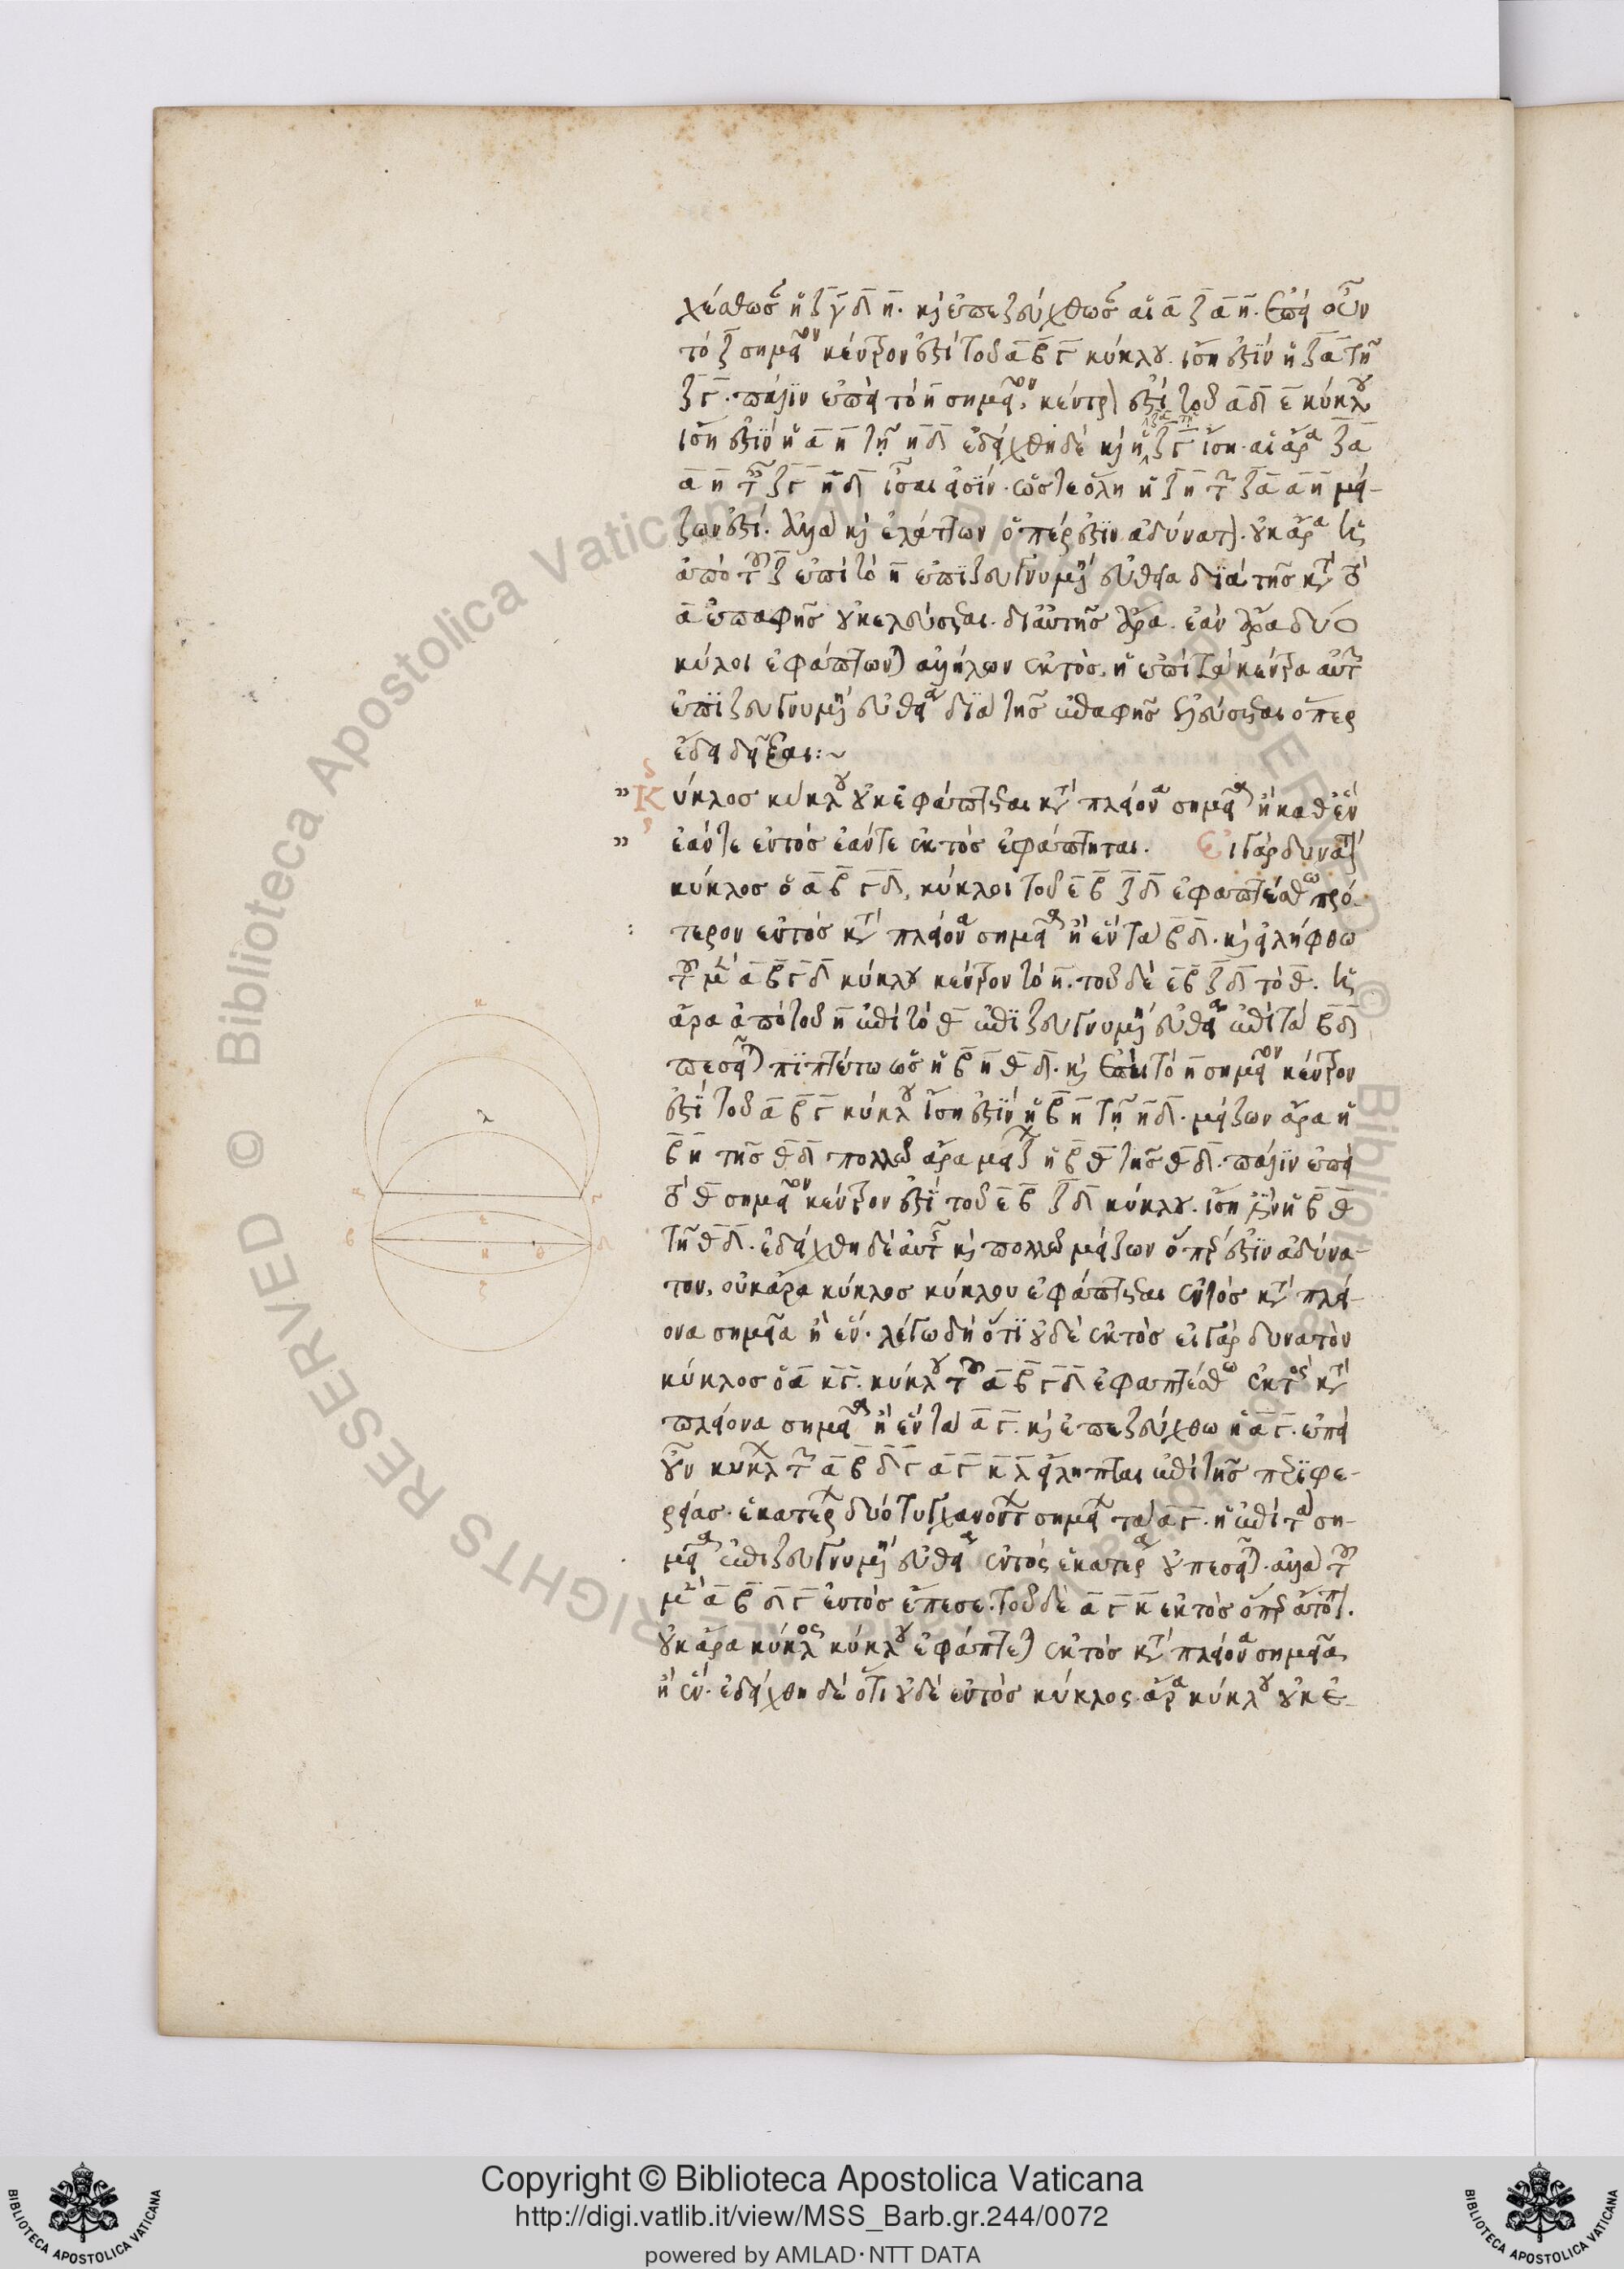 χέσθωσ ἡ ζ γ δ η. κὶ ἐπεζεύχθωσ αἱ α ζ α η. Ἐπεὶ οὖν
τό ζ σημεῖον κέντρον ἐστί τοῦ α β γ κύκλου. ἴση ἐστίν ἡ ζ α τῆ
ζ γ. πάλιν ἐπεὶ τό η σημεῖον, κέντρ ἐστί τοῦ α δ ε κύκλου
ἴση ἐστίν ἡ α η τῇ η δ ἐδείχθη δέ κὶ ἡ ζ γ ἴση. αἱ ἄρα ζ α
α η τ ζ γ η δ ἴσαι εἰσίν. ὥστε ὅλη ἡ ζ η τ ζ α α η μεί-
ζων ἐστί. ἀλλὰ κὶ ἐλάττων ὅπέρ ἐστιν ἀδύνατ. οὐκ ἄρα ἡ
ἀπό τοῦ ζ ἐπί τό η ἐπιζευγνυμένη εὐθεῖα διά τῆσ κατ τὸ
α ἐπαφῆσ οὐκ ἐλεύσεται. δι αὐτῆσ ἄρα. ἐάν ἄρα δύο
κύκλοι ἐφάπτωνται ἀλλήλων ἐκτὸσ, ἡ ἐπί τά κέντρα αὐτ
ἐπιζευγνυμένη εὐθεῖα διά τῆσ ἐπαφῆσ ἐλεύσεται ὅπερ
ἔδει δεῖξαι:~
Κύκλοσ κύκλου οὐκ ἐφάπτεται κατ πλείονα σημεῖα ἢ καθ ἓν
ἐάν τε ἐντόσ ἐάν τε ἐκτὸσ ἐφάπτηται. Εἰ γάρ δυνατ
κύκλοσ ὁ α β γ δ, κύκλου τοῦ ε β ζ δ ἐφαπτέσθω πρό-
τερον ἐντόσ κατ πλείονα σημεῖα ἢ ἓν τά β δ. κὶ εἰλήφθω
τοῦ μ α β γ δ κύκλου κέντρον τό η. τοῦ δέ ε β ζ δ τὸ θ. ἡ
ἄρα ἀπό τοῦ η ἐπί τό θ ἐπιζευγνυμένη εὐθεῖα ἐπί τά β δ
πεσεῖται πιπτέτω ὡσ ἡ β η θ δ. κὶ ἐπεὶ τό η σημεῖον κέντρον
ἐστί τοῦ α β γ κύκλου ἴση ἐστίν ἡ β η τῇ η δ. μείζων ἄρα ἡ
β η τῆσ θ δ πολλῶ ἄρα μειζ ἡ β θ τῆσ θ δ. πάλιν ἐπεὶ
τὸ θ σημεῖον κέντρον ἐστί τοῦ ε β ζ δ κύκλου. ἴση ἐστίν ἡ β θ
τῆ θ δ. ἐδείχθη δέ αὐτ κὶ πολλῶ μείζων ὅπερ ἐστίν ἀδύνα-
τον, οὐκ ἄρα κύκλοσ κύκλου ἐφάπτεται ἐντόσ κατ πλεί-
ονα σημεῖα ἢ ἕν. λέγω δή ὅτι οὐδέ ἐκτὸσ εἰ γάρ δυνατὸν
κύκλοσ ὁ α κ γ. κύκλου τοῦ α β γ δ ἐφαπτέσθω ἐκτὸς κατ
πλείονα σημεῖα ἢ ἓν τά α γ. κὶ ἐπεζεύχθω ἡ α γ. ἐπεὶ
οὖν κύκλ τ α β δ γ α γ κ λ εἴληπται ἐπί τῆσ περιφε-
ρείασ. ἑκατερ δύο τυγχανοντ σημεῖ τά α γ. ἡ ἐπί τὰ ση-
μεῖα ἐπιζευγνυμένη εὐθεῖα ἐντός ἑκατερ οὐ πεσεῖται. ἀλλὰ τοῦ
μ α β δ γ ἐντὸσ ἔπεσε. τοῦ δέ α γ κ ἐκτὸσ ὅπερ ἄτοπ.
οὐκ ἄρα κύκλος κύκλου ἐφάπτεται ἐκτὸσ κατ πλείονα σημεῖα
ἢ ἕν. ἐδείχθη δέ ὅτι οὐδέ ἐντὸσ κύκλος ἄρα κύκλου οὐκ ἐ-
κ
λ
α γ
ε
β η θ δ
ζ
Copyright © Biblioteca Apostolica Vaticana
http://digi.vatlib.it/view/MSS_Barb.gr.244/0072
powered by AMLAD·NTT DATA
BIBLIOTECA APOSTOLICA VATICANA
BIBLIOTECA APOSTOLICA VATICANA